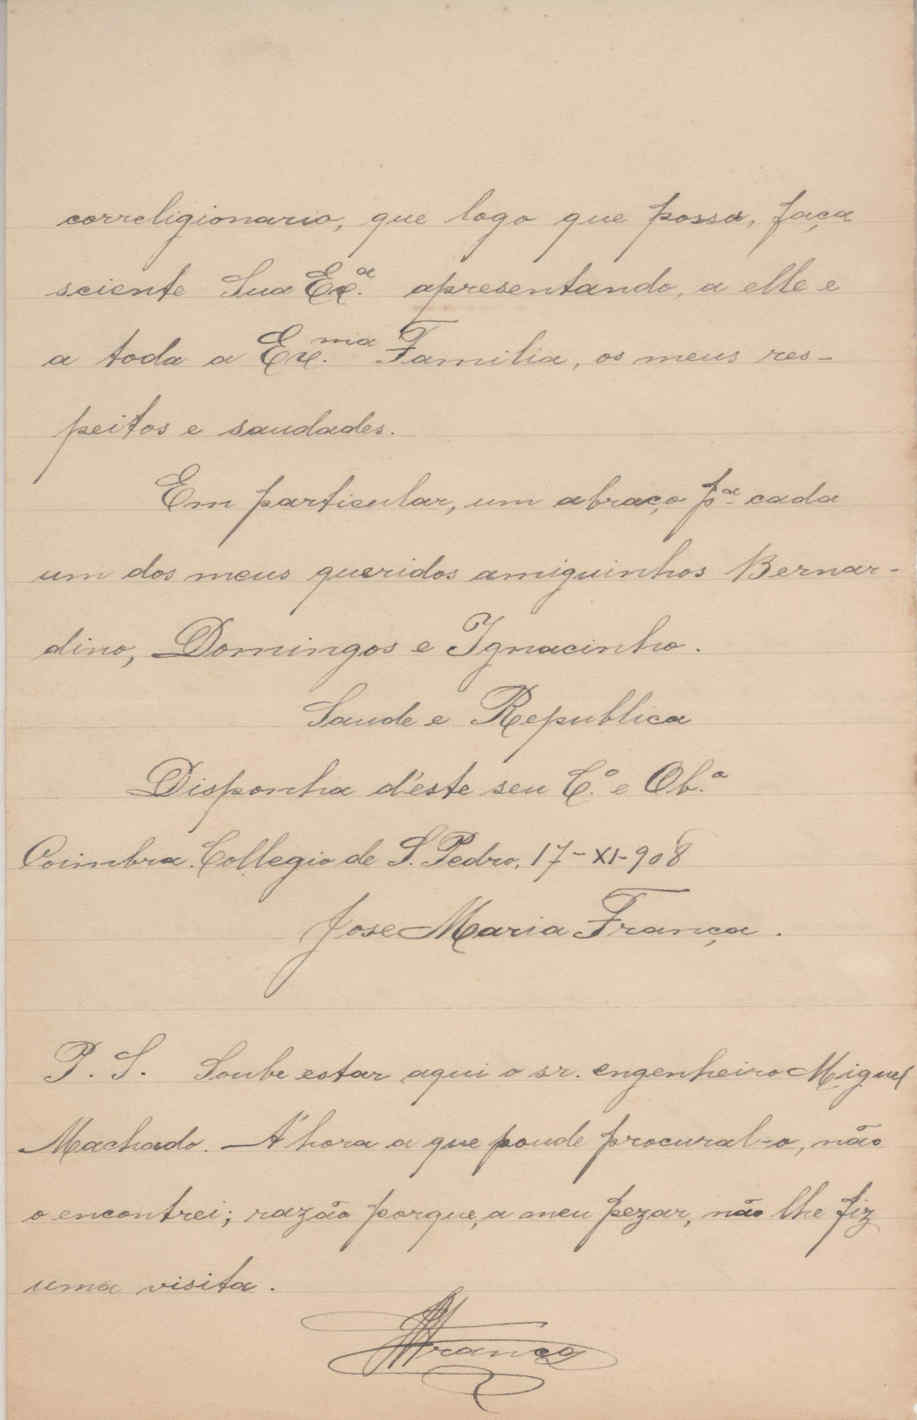 correligionario, que logo que possa, faça
sciente Sua Ex.ª apresentando, a elle e
a toda a Ex.ma Familia, os meus res-
peitos e saudades.
Em particular, um abraço p.ª cada
um dos meus queridos amiguinhos Bernar-
dino, Domingos e Ignacinho.
Saude e Republica
Disponha d'este seu C.º e Ob.º
Coimbra. Collegio de S. Pedro, 17-XI-908
Jose Maria França.
P. S. Soube estar aqui o sr. engenheiro Miguel
Machado. A' hora a que poude procural-o, não
o encontrei; razão porque, a meu pezar, não lhe fiz
uma visita.
França